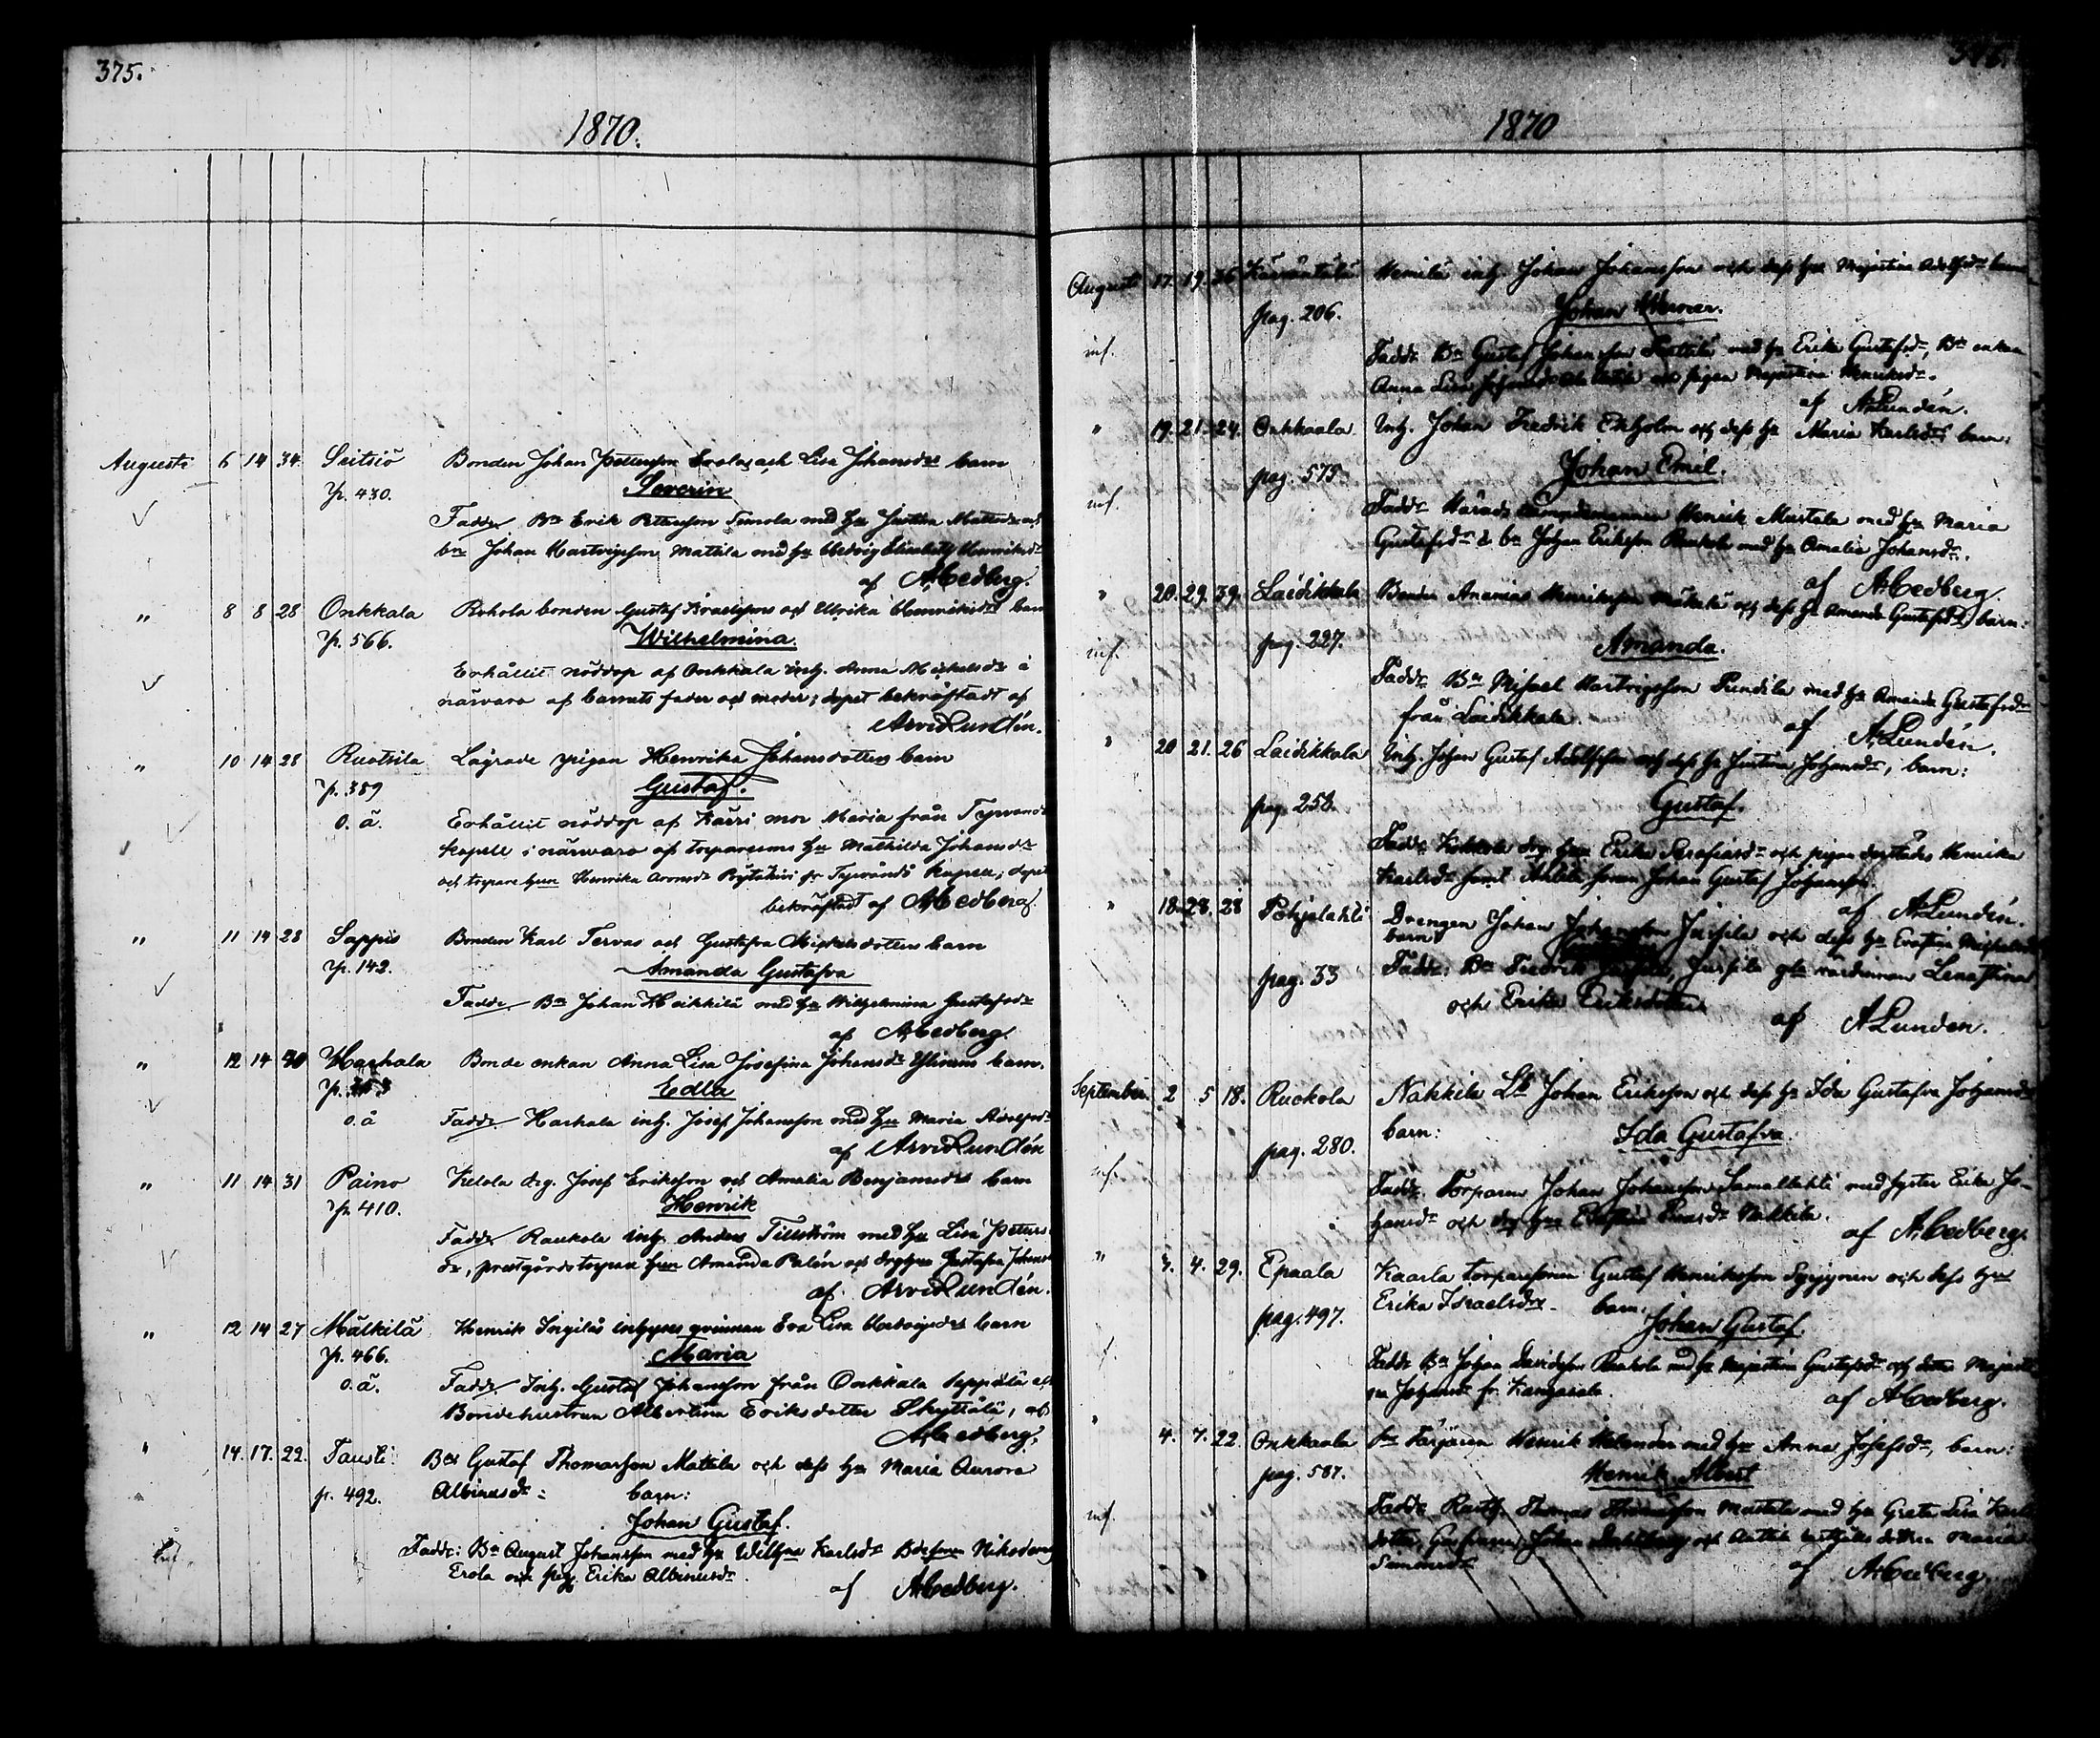 375.
1870.
Augusti 6 14 34. Seitsiö Bonden Johan Pettersson Erola och Lisa Johansdrs barn
p. 430. Severin
Fadd. Bn Erik Petersson Simola med hu Justina Mattsdr och
bn Johan Hartvigsson Mattila med hu Hedvig Elisabeth Henriksdr
af A. Cedberg.
" 8 8 28 Onkkala Rohola bonden Gustaf Israelssons och Ulrika Henriksdrs barn
p. 566. Wilhelmina.
Erhållit nöddop af Onkkala inh. Anna Michelsdr i
närvaro af barnets fader och moder; dopet bekräftadt af
Arvid Lundén.
" 10 14 28 Ruotsila Lägrade pigan Henrika Johansdotters barn
p. 389 Gustaf.
o. ä. Erhållit nöddop af Kärri mor Maria från Tyrvändö
kapell i närvaro af torparesons hu Mathilda Johansdr
och torpare hun Henrika Aronsdr fr Tyrvändö kapell; dopet
bekräftadt af A. Cedberg.
" 11 14 28 Sappis Bonden Karl Tervas och Gustafva Michelsdotters barn
p. 142. Amanda Gustafva
Fadd. Bn Johan Heikkilä med hu Wilhelmina Gustafsdr
af A. Cedberg.
" 12 14 30 Harhala Bonde enkan Anna Lisa Josefina Johansdr barn.
p. Edla
o. ä Fadd. Harhala inh. Josef Johansson med hu Maria Adolfsdr
af Arvid Lundén
" 11 14 31 Paino Ketola drg. Josef Eriksson och Amalia Benjamsdrs barn
p. 410. Henrik
Fadd. Raukola inh. Anders Tillström med hu Lisa Peters
dr, prestgårds torpare hun Amanda Palén och drg hun Gustafva Johansdr
af. Arvid Lundén.
" 12 14 27 Mälkilä Henrik Ingiläs inhyses qvinnan Eva Lisa Hartvigsdrs barn
p. 466. Maria
o. ä. Fadd. Inh. Gustaf Johansson från Onkkala Seppälä och
Bondehustrun Albertina Eriksdotter Skyttälä, af
A. Cedberg.
" 14. 17. 22. Tausti Bn Gustaf Thomasson Mattila och dess hu Maria Aurora
p. 492. Albinusdr: barn:
Johan Gustaf.
Fadd: Bn August Johansson med hu Wilhna Karlsdr Bdeson Nikodemus
Erola och pig. Erika Albinusdr. af A. Cedberg.
1870
Augusti 17. 19. 36 inh. Johan Johansson och dess hu Majastina Adolfsdr barn
pag. 206. Johan
inf. Faddr Bn Gustaf Johansson med hu Erika Gustafsdr, Bde enkan
Anna Lisa och pigan Majastina Henriksdr.
af A. Lundén.
" 19. 21. 24. Onkkaala Inh. Johan Fredrik Ekholm och dess hu Maria Karlsdrs barn:
pag. 575. Johan Emil.
inf. Faddr Härads Henrik Mustala med hu Maria
Gustafsdr & bn Johan Eriksson med hu Amalia Johansdr.
af A. Cedberg.
" 20. 29. 39. Laidikkala Bonden Ananias Henriksson Mäkelä och dess hu Amanda Gustafsdrs barn:
pag. 227. Amanda.
inf. Faddr Bn Misael Hartvigsson Pundila med hu Amanda Gustafsdr
från Laidikkala. af A. Lundén.
" 20 21. 26 Laidikkala Inh. Johan Gustaf Adolfsson och dess hu Justina Johansdr, barn:
pag. 258. Gustaf.
Fadd. drg hun Erika Serafiasdr och pigan Henrika
Karlsdr samt sonen Johan Gustaf Johansson.
af A. Lundén.
" 18. 28. 28 Pohjalahti Drengen Johan Johansson Jussila och dess hu Evastina Michelsdr
barn
pag. 33 Fadd: Bn Fredrik Jussila gla värdinnan Lenastina
och Erika Eriksdotter
af A. Lundén.
September. 2 5 18. Ruokola Nakkila Johan Eriksson och dess hu Ida Gustafva Johansdr
barn: Ida Gustafva
pag. 280.
inf. Fadd. Torparen Johan Johansson med syster Erika Jo-
hansdr och drg hun Nakkila.
af A. Cedberg.
" 3. 4. 29. Epaala Kaarla torparesonen Gustaf Henriksson och dess hu
pag. 497. Erika Israelsdr barn:
Johan Gustaf.
Fadd Bn Johan Davidsson med hu Majastina Gustafsdr och
fr. Kangasala. af A. Cedberg.
" 4. 7. 22. Onkkaala Färjaren Henrik Helander med hu Anna Josefsdr, barn:
pag. 587. Henrik Albert
inf. Fadd. Thomas Thomasson Mustala med hu Greta Lisa Karls
dotter, Johan och Maria
Simonsdr af A. Cedberg.